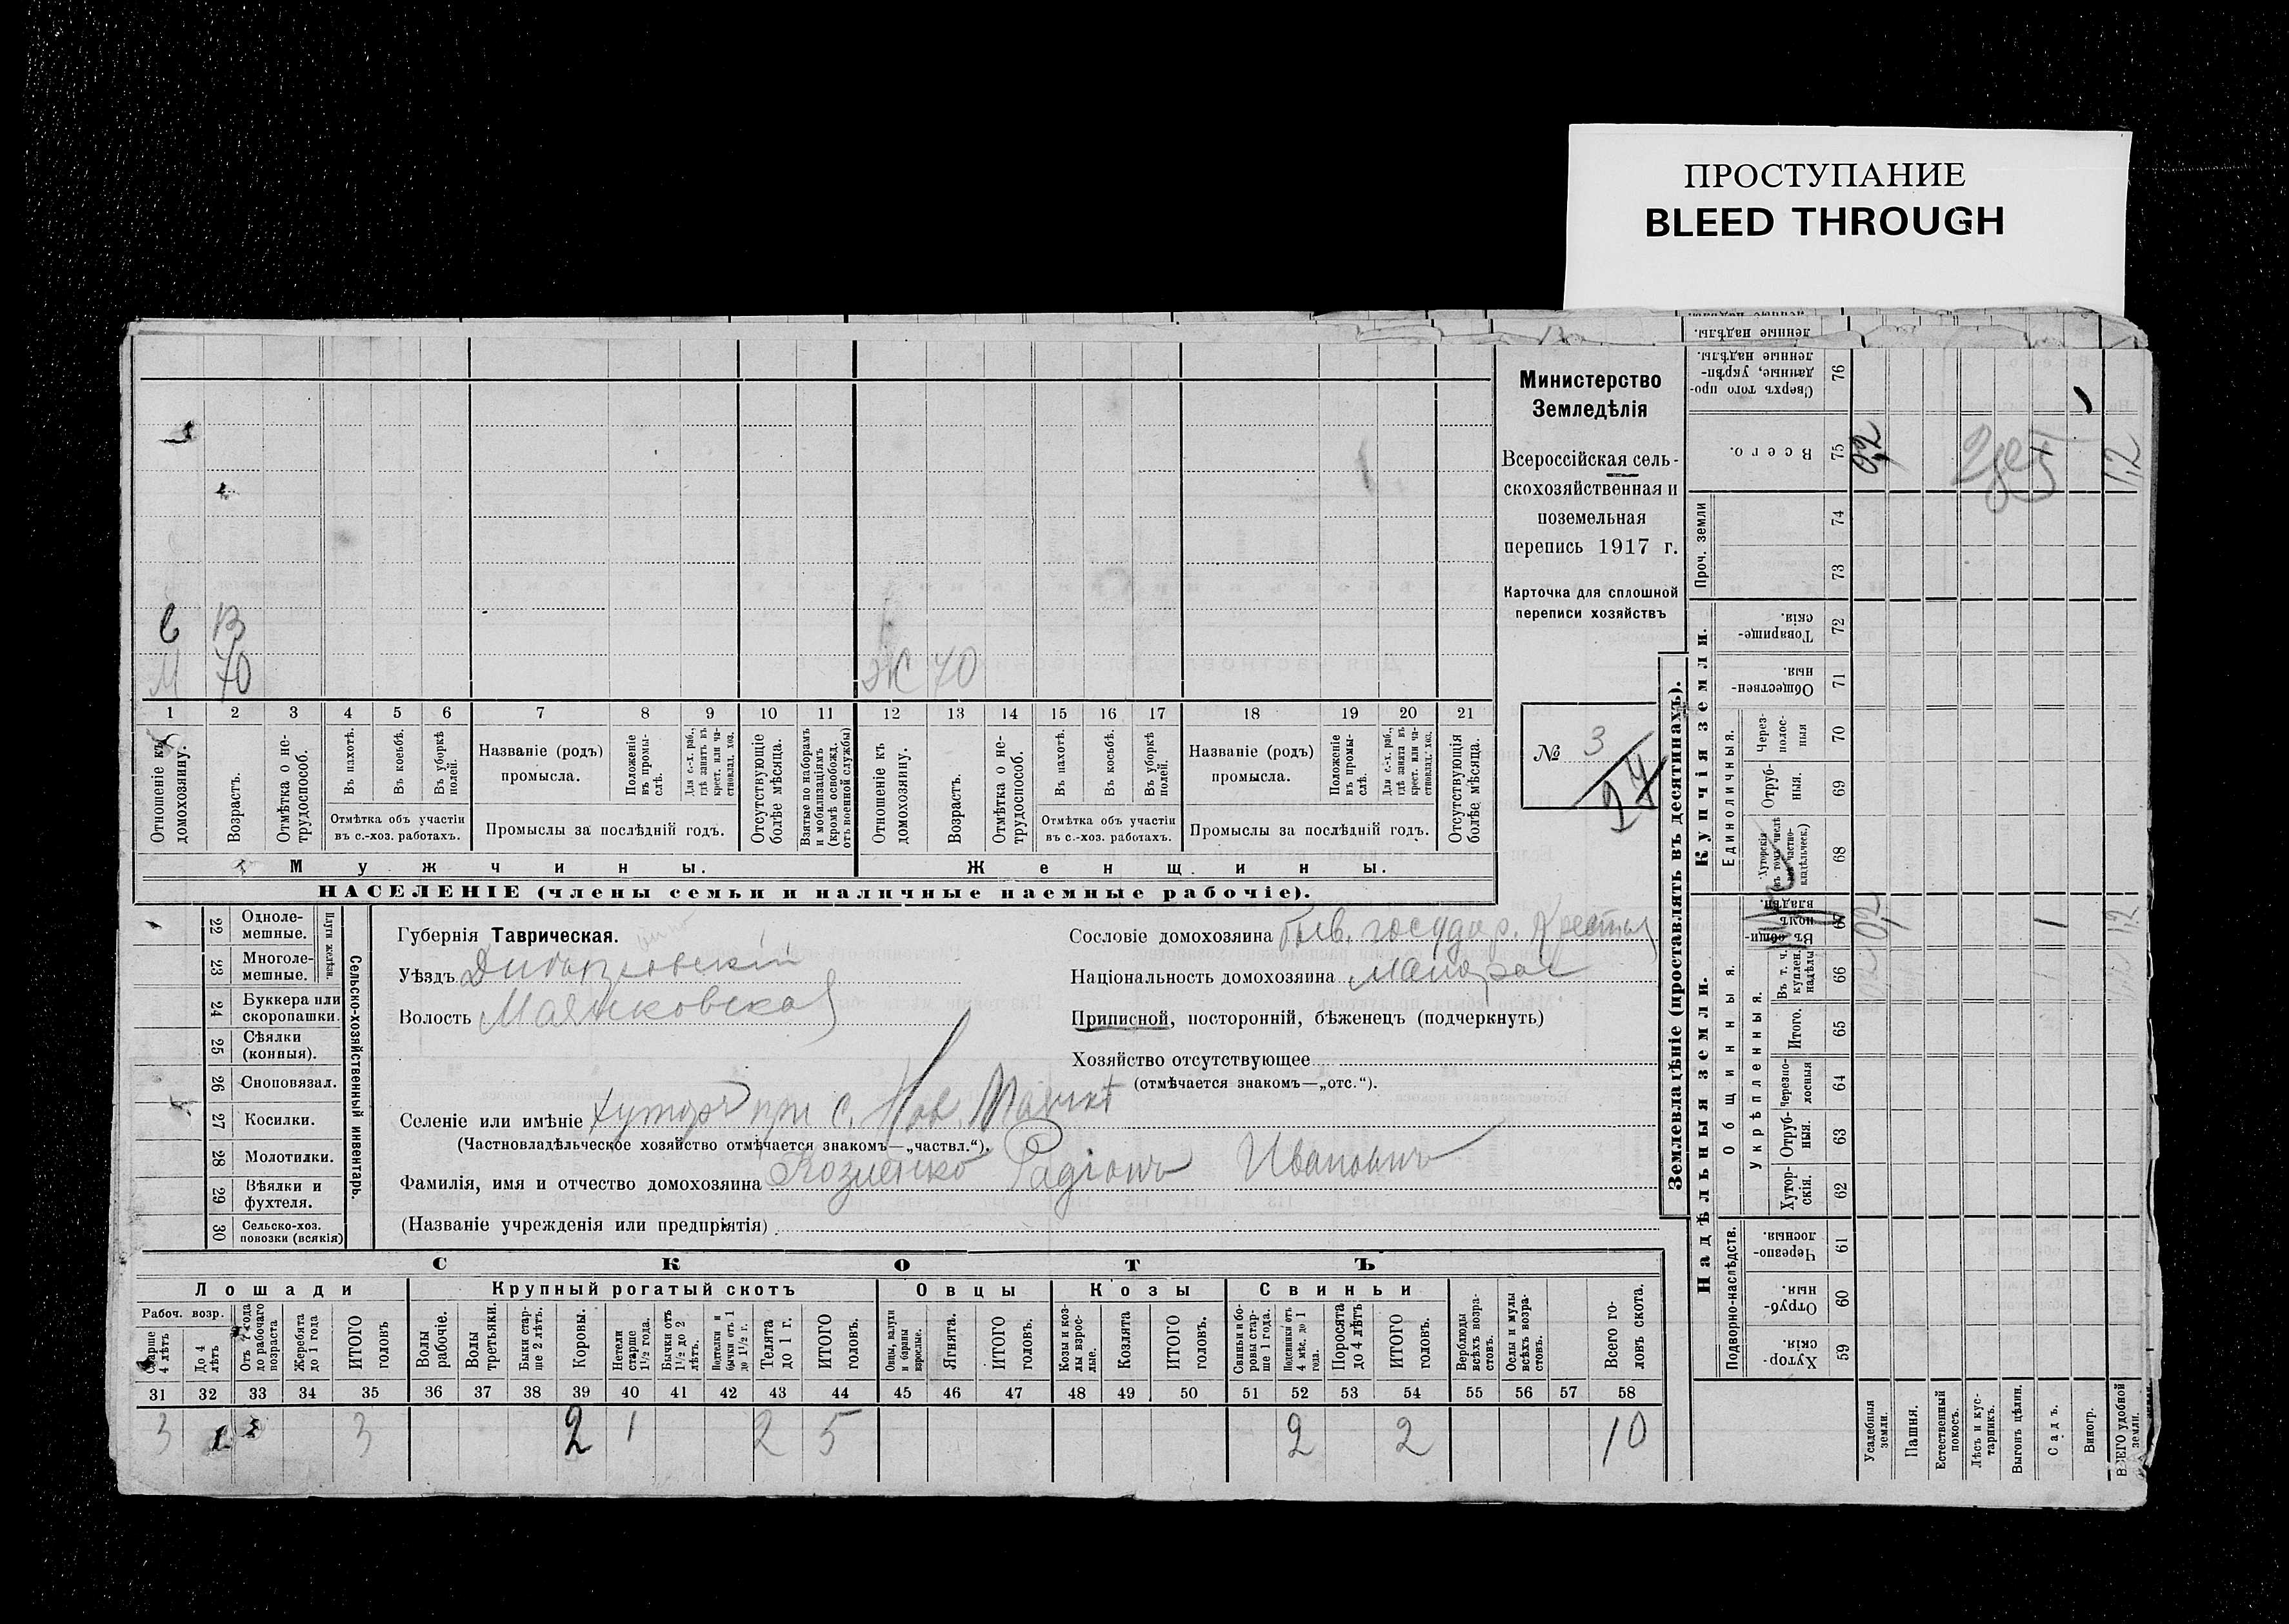 ПРОСТУПАНИЕ
BLEED THROUGH
Министерство
Земледѣлія
Всероссійская сель-
скохозяйственная и
поземельная
перепись 1917 г.
Карточка для сплошной
переписи хозяйствъ
№ 3
24
в 13
М 70
Ж 70
1 2 3 4 5 6 7 8 9 10 11 12 13 14 15 16 17 18 19 20 21
Отношеніе къ домохозяину.
Возрастъ.
Отмѣтка о не-трудоспособ.
Въ пахотѣ.
Въ косьбѣ.
Въ уборкѣ полей.
Отмѣтка объ участіи
въ с.-хоз. работахъ.
Названіе (родъ)
промысла.
Положеніе въ промы-слѣ.
Для с.-х. раб., гдѣ занятъ въ крест. или ча-стновлад. хоз.
Промыслы за послѣдній годъ.
Отсутствующіе болѣе мѣсяца.
Взятые по наборамъ и мобилизаціямъ (кромѣ освобожд. отъ военной службы)
Отношеніе къ домохозяину.
Возрастъ.
Отмѣтка о не-трудоспособ.
Въ пахотѣ.
Въ косьбѣ.
Въ уборкѣ полей.
Отмѣтка объ участіи
въ с.-хоз. работахъ.
Названіе (родъ)
промысла.
Положеніе въ промы-слѣ.
Для с.-х. раб., гдѣ занята въ крест. или ча-стновлад. хоз.
Промыслы за послѣдній годъ.
Отсутствующія болѣе мѣсяца.
Мужчины.
Женщины.
НАСЕЛЕНІЕ (члены семьи и наличные наемные рабочіе).
22 Одноле-мешные.
23 Многоле-мешные.
Плуги желѣзн.
24 Буккера или скоропашки.
25 Сѣялки (конныя).
26 Сноповязал.
27 Косилки.
28 Молотилки.
29 Вѣялки и фухтеля.
30 Сельско-хоз. повозки (всякія)
Сельско-хозяйственный инвентарь.
Губернія Таврическая.
Уѣздъ Днѣпровскій
Волость Маячковская
Селеніе или имѣніе хуторъ при с. Нов. Маячкѣ
(Частновладѣльческое хозяйство отмѣчается знакомъ—„частвл.“).
Фамилія, имя и отчество домохозяина Козленко Радіонъ Ивановичъ
(Названіе учрежденія или предпріятія)
Сословіе домохозяина бывш. государ. крестьян
Національность домохозяина малорос
Приписной, посторонній, бѣженецъ (подчеркнуть)
Хозяйство отсутствующее
(отмѣчается знакомъ—„отс.“).
СКОТЪ
Лошади
Крупный рогатый скотъ
Овцы
Козы
Свиньи
Рабоч. возр.
Старше 4 лѣтъ
До 4 лѣтъ
Отъ 1 года до рабочаго возраста
Жеребята до 1 года
ИТОГО головъ
Волы рабочіе.
Волы третьяки.
Быки стар-ше 2 лѣтъ.
Коровы.
Нетели старше 1½ года.
Бычки отъ 1½ до 2 лѣтъ.
Подтелки и бычки отъ 1 до 1½ г.
Телята до 1 г.
ИТОГО головъ.
Овцы, валухи и бараны взрослые.
Ягнята.
ИТОГО головъ.
Козы и коз-лы взрос-лые.
Козлята
ИТОГО головъ.
Свиньи и бо-ровы стар-ше 1 года.
Подсвинки отъ 4 мѣс. до 1 года.
Поросята до 4 мѣс.
ИТОГО головъ.
Верблюды всѣхъ возра-стовъ.
Ослы и мулы всѣхъ возра-стовъ.
Всего го-ловъ скота.
31 32 33 34 35 36 37 38 39 40 41 42 43 44 45 46 47 48 49 50 51 52 53 54 55 56 57 58
3 3 2 1 2 5 2 2 10
Землевладѣніе (проставлять въ десятинахъ).
Надѣльныя земли.
Купчія земли.
Проч. земли
Подворно-наслѣдств.
Общинныя.
Укрѣпленныя.
Единоличныя.
Хутор-скія. 59
Отруб-ныя. 60
Черезпо-лосныя. 61
Хутор-скія. 62
Отруб-ныя. 63
Черезпо-лосныя 64
Итого. 65
Въ т. ч. куплен. надѣлы 66
Въ общи-номъ владѣн. 67
Хуторскія 68
Отруб-ныя. 69
Через-полос-ныя 70
Обществен-ныя. 71
Товарище-скія. 72
73
74
Всего. 75
Сверхъ того про-данные, укрѣп-ленные надѣлы. 76
Усадебныя земли.
Пашня.
Естественный покосъ.
Лѣсъ и кус-тарникъ.
Выгонъ цѣлин.
Садъ.
Виногр.
ВСЕГО удобной земли.
0,2
1
1,2
0,2
1,2